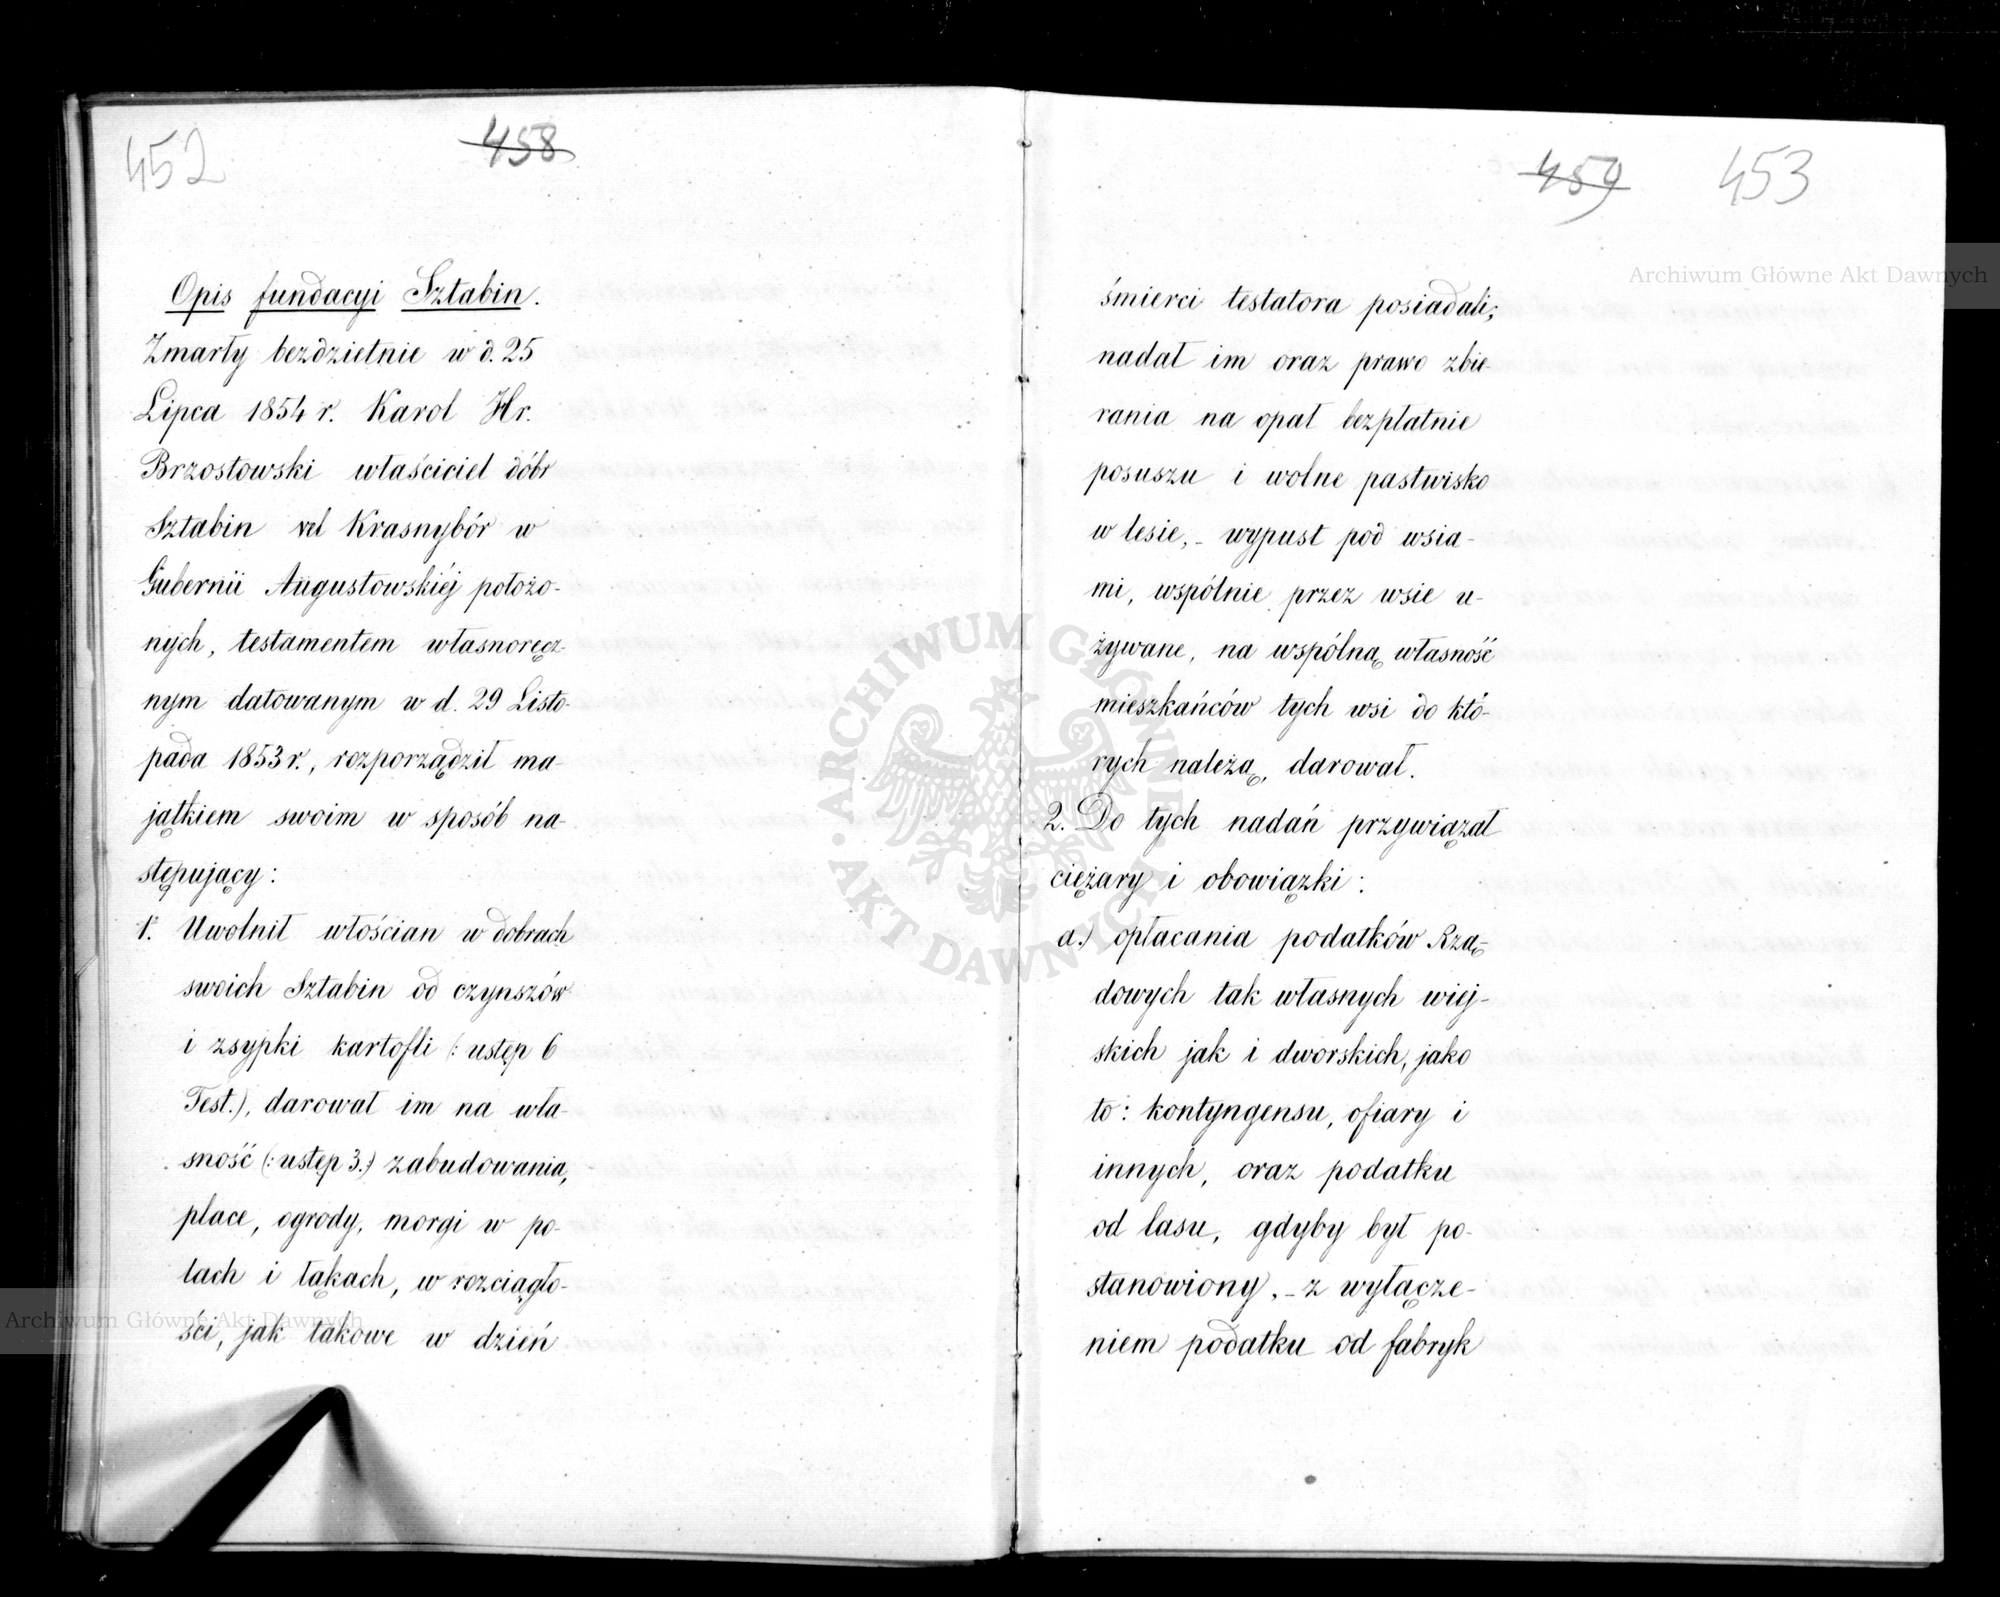 452
458
Opis fundacyi Sztabin.
Zmarły bezdzietnie w d. 25
Lipca 1854 r. Karol Hr.
Brzostowski właściciel dóbr
Sztabin vel Krasnybór w
Gubernii Augustowskiéj położo-
nych, testamentem własnoręcz-
nym datowanym w d. 29 Listo-
pada 1853 r., rozporządził ma-
jątkiem swoim w sposób na-
stępujący:
1. Uwolnił włościan w dobrach
swoich Sztabin od czynszów
i zsypki kartofli (: ustęp 6
Test.), darował im na wła-
sność (: ustęp 3.) zabudowania,
place, ogrody, morgi w po-
lach i łąkach, w rozciągło-
ści, jak takowe w dzień
459
453
śmierci testatora posiadali;
nadał im oraz prawo zbie-
rania na opał bezpłatnie
posuszu i wolne pastwisko
w lesie, - wypust pod wsia-
mi, wspólnie przez wsie u-
żywane, na wspólną własność
mieszkańców tych wsi do któ-
rych należą, darował.
2. Do tych nadań przywiązał
ciężary i obowiązki:
a.) opłacania podatków Rzą-
dowych tak własnych wiej-
skich jak i dworskich, jako
to: kontyngensu, ofiary i
innych, oraz podatku
od lasu, gdyby był po-
stanowiony, - z wyłącze-
niem podatku od fabryk
Archiwum Główne Akt Dawnych
ARCHIWUM GŁÓWNE AKT DAWNYCH
Archiwum Główne Akt Dawnych